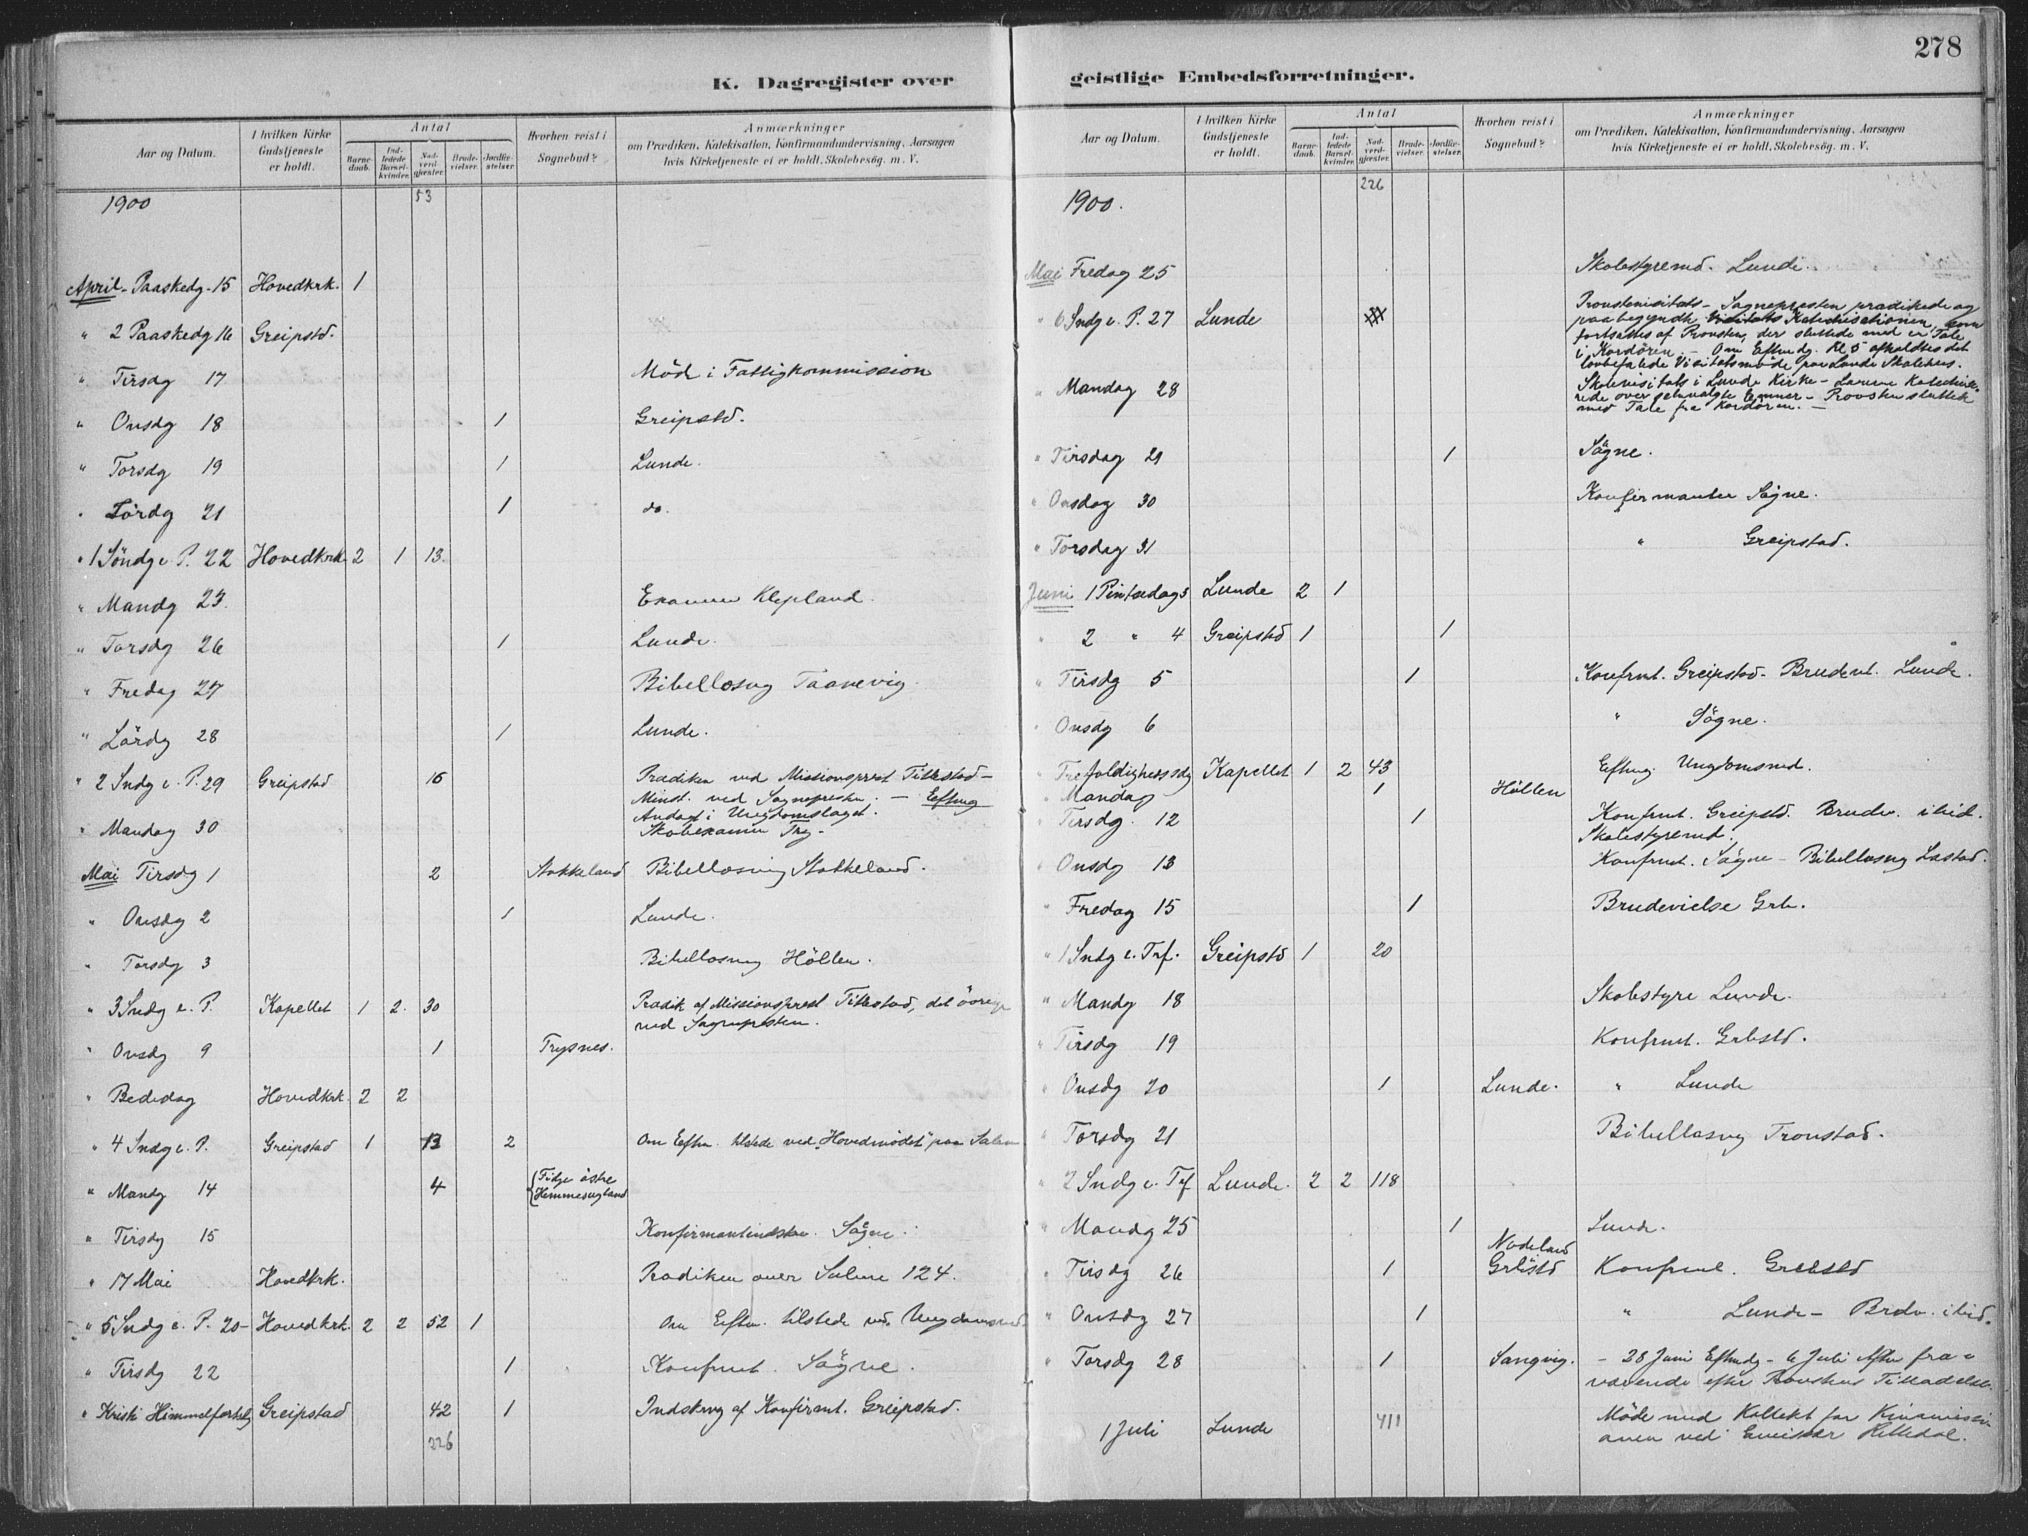 278
K. Dagregister over
Aar og Datum.
I hvilken Kirke Gudstjeneste er holdt.
Antal
Barnedaab.
Indledede Barselkvinder.
Nadverdgjæster.
Brudevielser.
Jordfæstelser.
Hvorhen reist i Sognebud?
Anmærkninger
om Prædiken, Katekisation, Konfirmandundervisning, Aarsagen
hvis Kirketjeneste ei er holdt, Skolebesøg. m. V.
1900 53
April - Paaskedg. 15 Hovedkrk. 1
" 2 Paaskedg 16 Greipstd.
" Tirsdg 17 Mød i Fattigkommission
" Onsdg 18 1 Greipstd.
" Torsdg 19 1 Lunde.
" Lördg 21 1 do.
" 1 Söndg e. P. 22 Hovedkrk. 2 1 13.
" Mandg 23. Examen Klepland.
" Torsdg 26 1 Lunde.
" Fredag 27 Bibellæsng Taanevig.
" Lördg 28 1 Lunde.
" 2 Sndg e. P. 29 Greipstad 16 Prædiken ved Missionsprest Titlestad -
Minist. ved Sognepresten. - Eftmg
Andagt i Ungdomslaget.
" Mandag 30 Skoleexamen Try.
Mai Tirsdg 1 2 Stokkeland Bibellæsning Stokkeland.
" Onsdg 2 1 Lunde.
" Torsdg 3 Bibellæsng Höllen.
" 3 Sndg e. P. Kapellet 1 2. 30 Prædik af Missionsprest Titlestad, det övrige
ved Sognepresten.
" Onsdg 9 1 Trysnes.
" Bededag Hovedkrk. 2 2
" 4 Sndg e. P. Greipstad 1 13 2 Om Eftm. tilstede ved "Hovedmödet" paa Salem
" Mandg 14 4 Fidje östre
" Tirsdg 15 Søgne.
" 17 Mai Hovedkrk. Prædiken over Salme 124.
" 5 Sndg e. P. 20 - Hovedkrk. 2 2 52 1 Om Eftm. tilstede ved
" Tirsdg 22 1 Konfrmt. Sögne.
" Kristi Himmelfartsdg Greipstad 42 1 Indskrvg af Konfirmt. Greipstad.
226
geistlige Embedsforretninger.
Aar og Datum.
I hvilken Kirke Gudstjeneste er holdt.
Antal
Barnedaab.
Indledede Barselkvinder.
Nadverdgjæster.
Brudevielser.
Jordfæstelser.
Hvorhen reist i Sognebud?
Anmærkninger
om Prædiken, Katekisation, Konfirmandundervisning, Aarsagen
hvis Kirketjeneste ei er holdt, Skolebesøg. m. V.
1900. 226
Mai Fredag 25 Skolestyremd. Lunde.
" 6 Sndg e. P. 27 Lunde Provstevisitats - Sognepresten prædikede og
paabegyndte Katechisationen, som
fortsattes af Provsten, der sluttede med en Tale
i Kordören. - Om Eftmdg. Kl 5 afholdtes det
lovbefalede Visitatsmöde paa Lunde Skolehus.
" Mandag 28 Skolevisitats i Lunde Kirke -
rede over selvvalgte Emner - Provsten sluttede
med Tale fra Kordören. -
" Tirsdag 29 1 Sögne.
" Onsdag 30 Konfirmanter Sögne.
" Torsdag 31 " Greipstad.
Juni 1 Pintsedag 3 Lunde 2 1
" 2 " 4 Greipstd 1 1
" Tirsdg 5 1 Konfrmt. Greipstad - Brudev. Lunde.
" Onsdg 6 " Sögne.
" Trefoldighedssdg Kapellet 1 2 43 Eftmg. Ungdomsmd.
" Mandag 1 Höllen
" Tirsdg. 12 1 Konfrmt. Greipstd. Brudev. ibid.
Skolestyremd.
" Onsdg 13 Konfrmt. Sögne - Bibellæsng Lastad.
" Fredag 15 1 Brudevielse Grb.
" 1 Sndg e. Trf. Greipstd 1 20
" Mandg 18 Skolestyre Lunde.
" Tirsdg 19 Konfrmt. Grbstd.
" Onsdg 20 1 Lunde. " Lunde
" Torsdg 21 Bibellæsng Tronstad.
" 2 Sndg e. Trf Lunde. 2 2 118
" Mandg 25 1 Lunde.
" Tirsdg 26 1 Nodeland
Grbstd Konfrmt. Grbstd
" Onsdg 27 1 " Lunde - Brdv. ibid.
" Torsdg 28 1 Sangvig. - 28 Juni Eftmdg - 6 Juli Aften fra-
værende efter Provstens Tilladelse.
1 Juli Lunde 411 Möde med Kollekt for Kinamissi-
onen ved